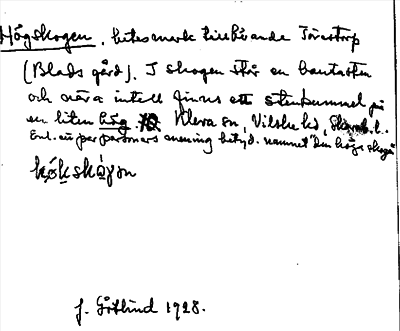 Högskogen, betesmark tillhörande Torestorp
(Blads gård). I skogen står en bautasten
och nära intill finns ett stenkummel på
en liten hög. Kleva sn, Vilske hd, Skarab. l.
Enl. ett par personers mening betyd. namnet "den höga skogen"
J. Götlind 1928.